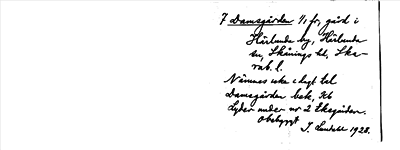 7 Damsgården 1/1 fr, gård i
Härlunda by, Härlunda
sn, Skånings hd, Ska-
rab. l.
Nämnes icke i legt
Damsgården bek. Kb
Lyder under nr 2 Ekegården.
Obebyggt
J. Lundahl 1928.